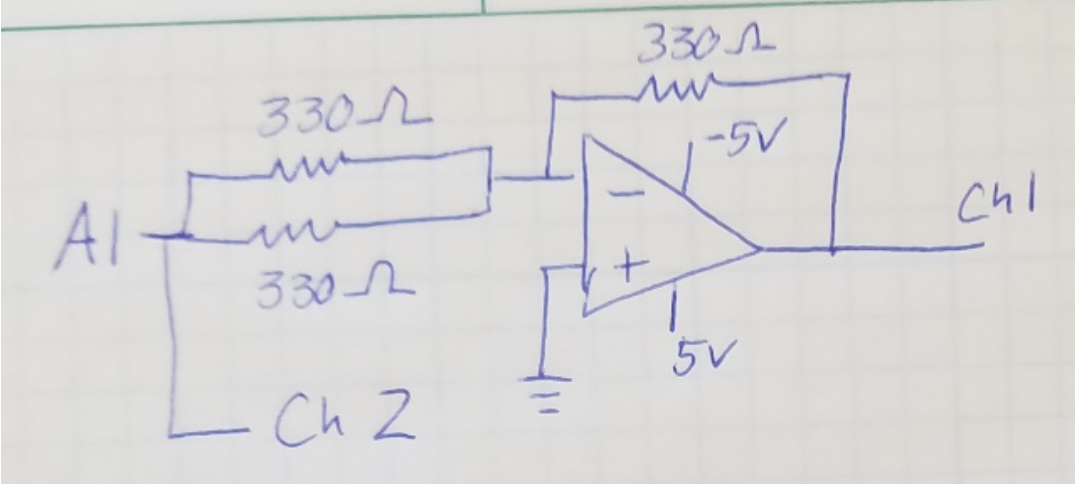 330Ω
330Ω
-5V
Ch1
A1
−
+
330Ω
5V
Ch 2